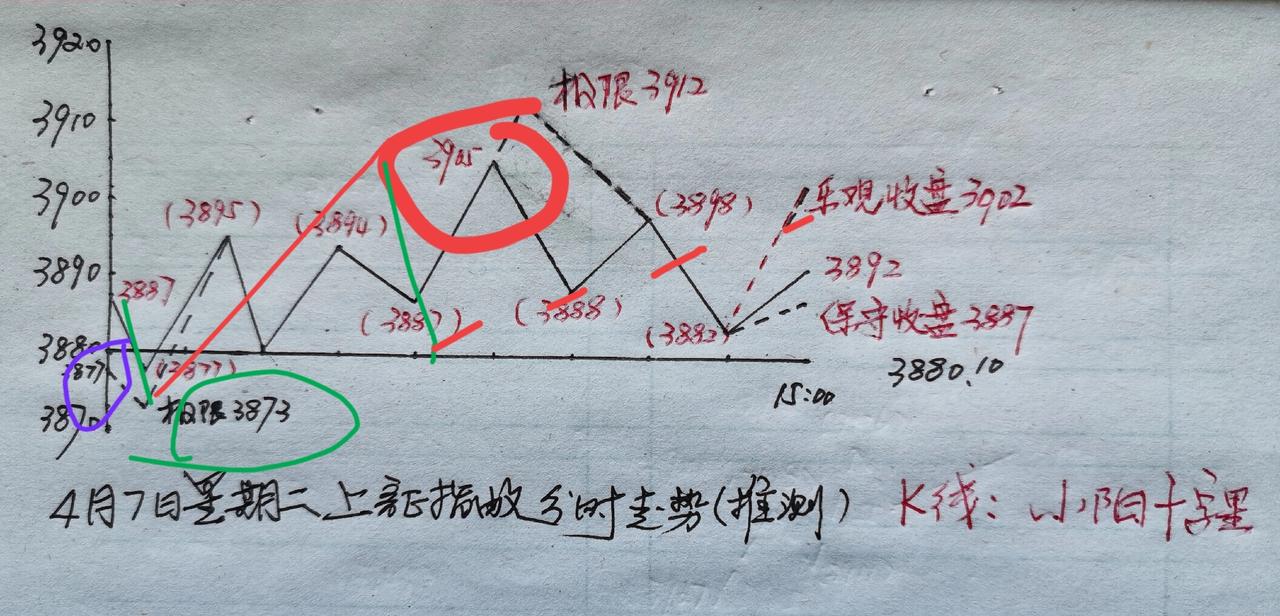 3920
极限3912
3910
3905
3900
(3895)
(3894)
(3898)
乐观收盘3902
3890
3887
3892
(3887)
(3888)
(3882)
保守收盘3887
3880
3877
(3877)
3880.10
3870
极限3873
15:00
4月7日星期二上证指数分时走势(推测)
K线:小阳十字星